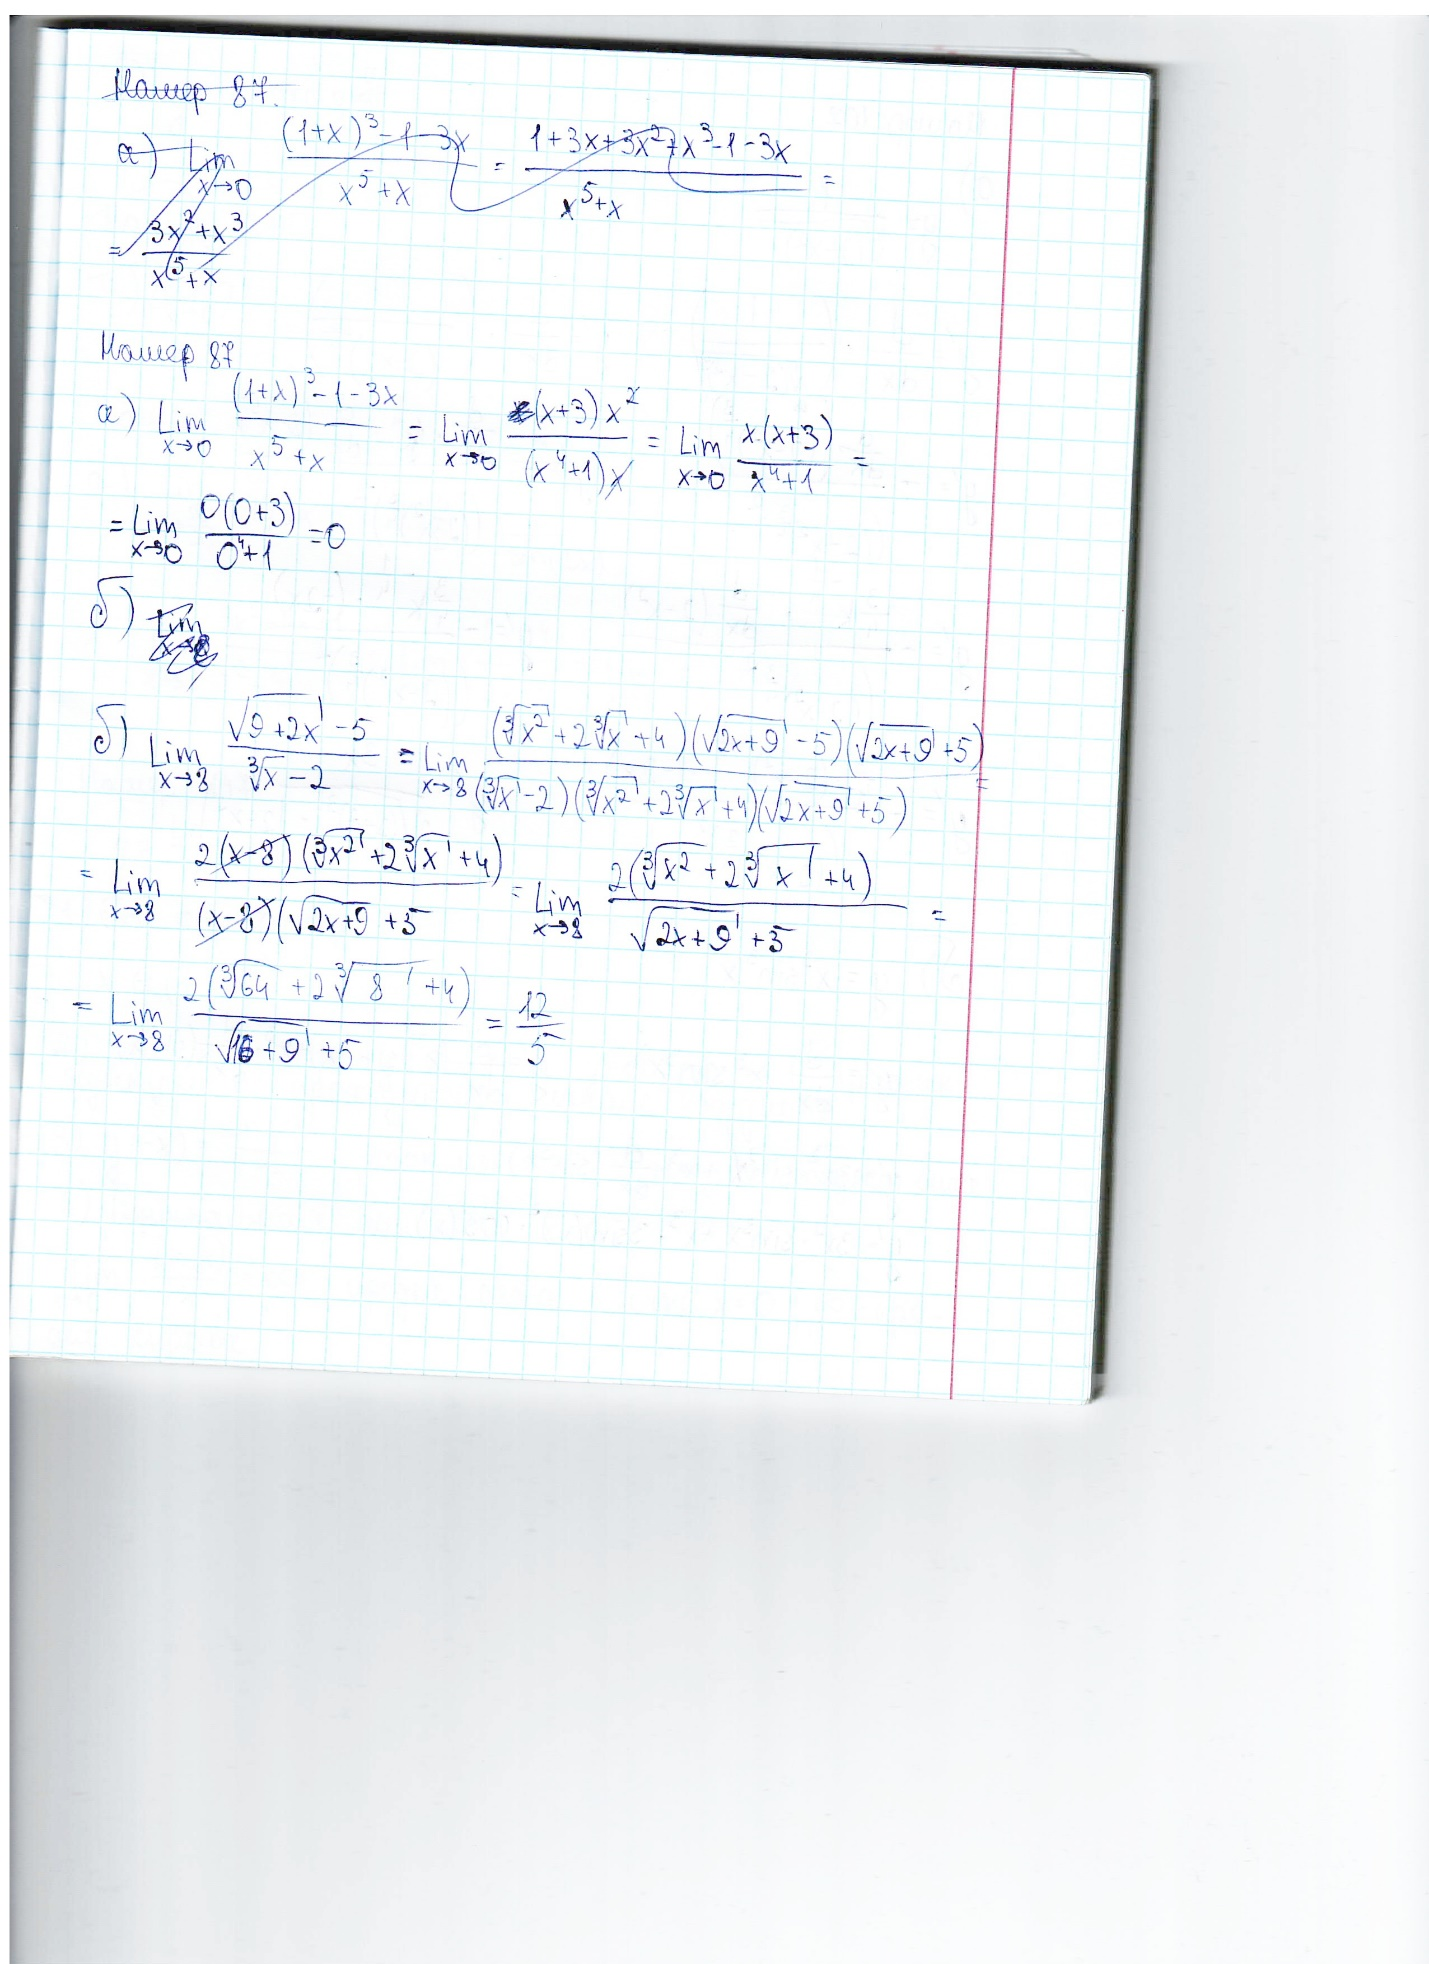 Номер 87.
а) Lim x→0 ((1+x)³-1-3x)/(x⁵+x) = (1+3x+3x²+x³-1-3x)/(x⁵+x) =
= (3x²+x³)/(x⁵+x)
Номер 87
а) Lim x→0 ((1+x)³-1-3x)/(x⁵+x) = Lim x→0 ((x+3)x²)/((x⁴+1)x) = Lim x→0 (x·(x+3))/(x⁴+1) =
= Lim x→0 (0(0+3))/(0⁴+1) = 0
б) Lim x→8
б) Lim x→8 (√(9+2x) - 5)/(∛x - 2) = Lim x→8 ((∛x² + 2∛x + 4)(√(2x+9) - 5)(√(2x+9) + 5))/((∛x - 2)(∛x² + 2∛x + 4)(√(2x+9) + 5)) =
= Lim x→8 (2(x-8)(∛x² + 2∛x + 4))/((x-8)(√(2x+9) + 5) = Lim x→8 (2(∛x² + 2∛x + 4))/(√(2x+9) + 5) =
= Lim x→8 (2(∛64 + 2∛8 + 4))/(√(16+9) + 5) = 12/5